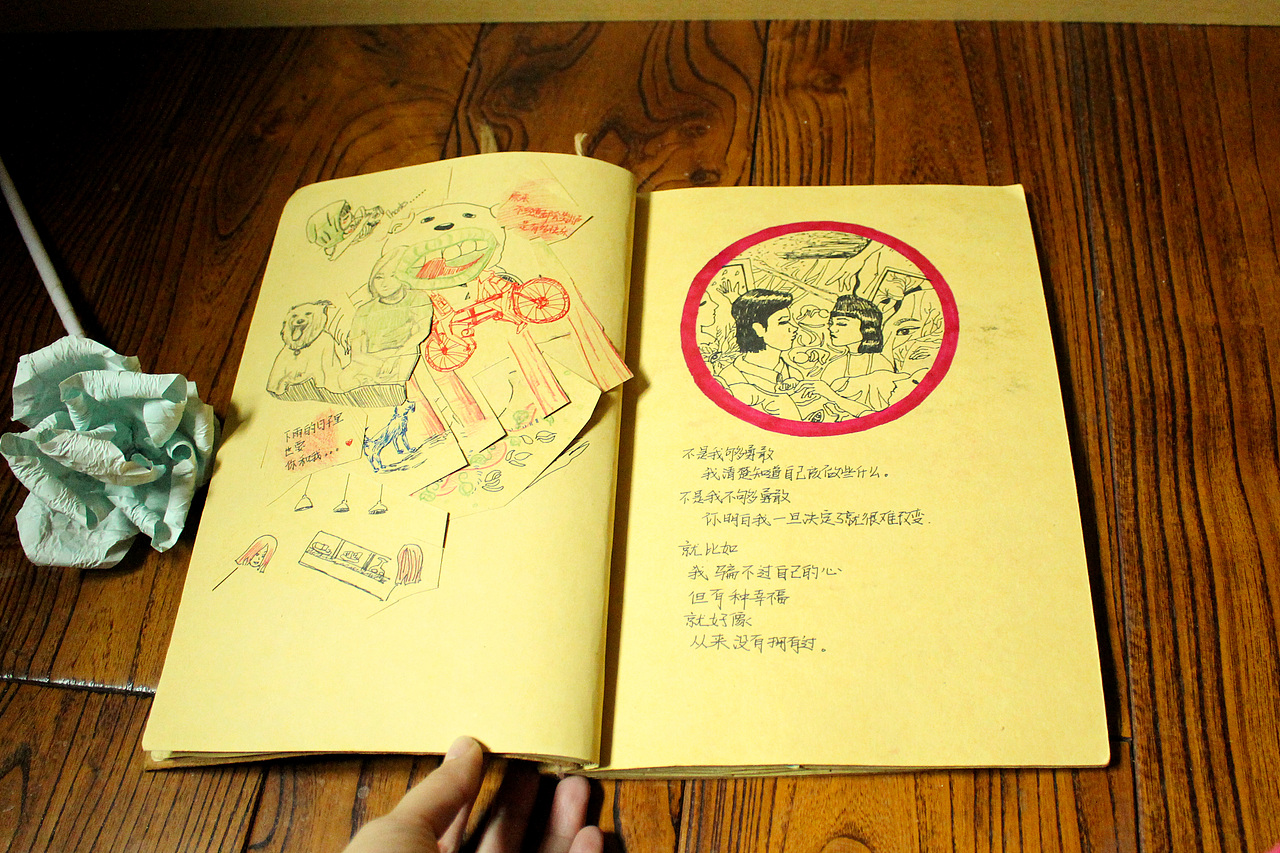 thanks......
原来
是有的快乐
下雨的日子里
也要
你和我...
不是我够勇敢
我清楚知道自己该做些什么。
不是我不够勇敢
你明白我一旦决定了就很难改变.
就比如
我骗不过自己的心
但有种幸福
就好像
从来没有拥有过。